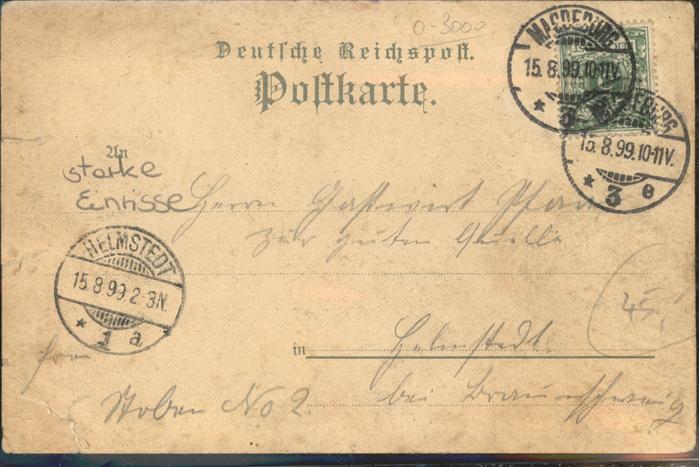 0-3000
Deutsche Reichspost.
Postkarte.
MAGDEBURG
15.8.99.10-11V.
* 3
MAGDEBURG
15.8.99.10-11V.
* 3 e
An
starke
Einrisse
Herrn Gastwirt
zur guten Quelle
HELMSTEDT
15.8.99.2-3N.
* 1 a
45,
in Helmstedt.
bei Braunschweig
Stoben No 2.